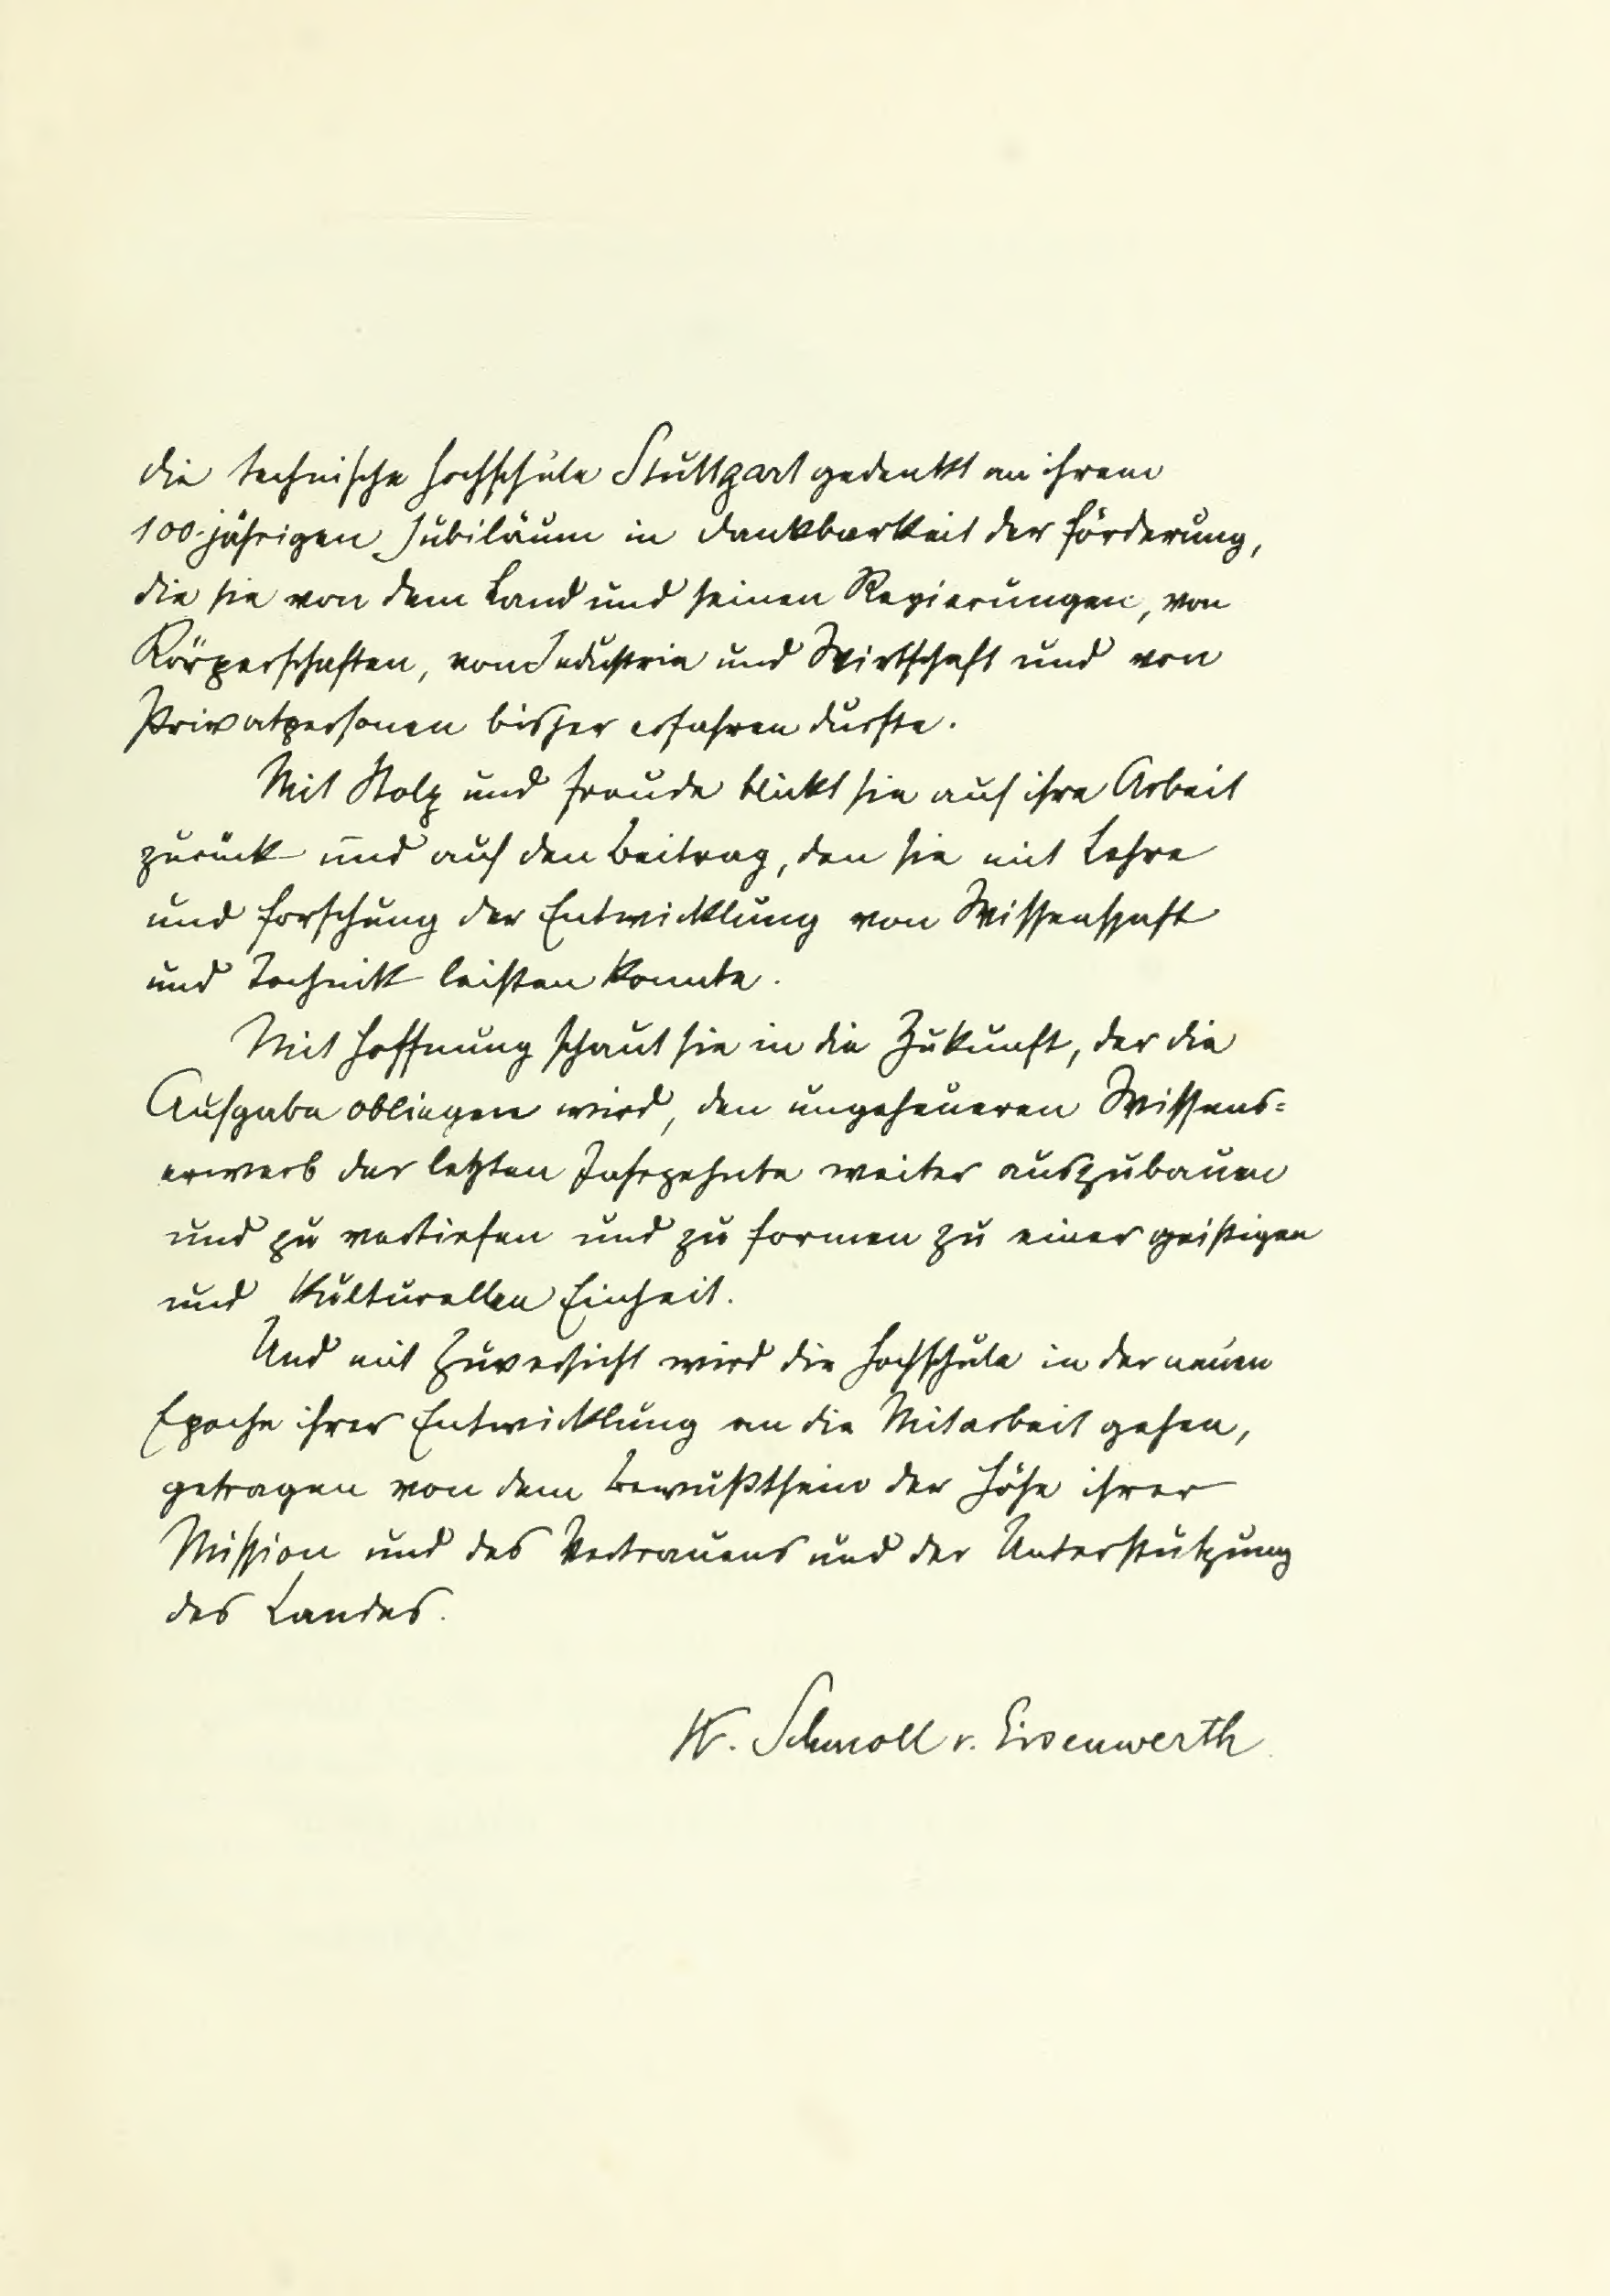 Die technische Hochschule Stuttgart gedenkt an ihrem
100-jährigen Jubiläum in Dankbarkeit der Förderung,
die sie von dem Land und seinen Regierungen, von
Körperschaften, von Industrie und Wirtschaft und von
Privatpersonen bisher erfahren durfte.
Mit Stolz und Freude blickt sie auf ihre Arbeit
zurück und auf den Beitrag, den sie mit Lehre
und Forschung der Entwicklung von Wissenschaft
und Technik leisten konnte.
Mit Hoffnung schaut sie in die Zukunft, der die
Aufgabe obliegen wird, den ungeheueren Wissens=
erwerb der letzten Jahrzehnte weiter auszubauen
und zu vertiefen und zu formen zu einer geistigen
und kulturellen Einheit.
Und mit Zuversicht wird die Hochschule in der neuen
Epoche ihrer Entwicklung an die Mitarbeit gehen,
getragen von dem Bewußtsein der Höhe ihrer
Mission und des Vertrauens und der Unterstützung
des Landes.
W. Schmoll v. Eisenwerth